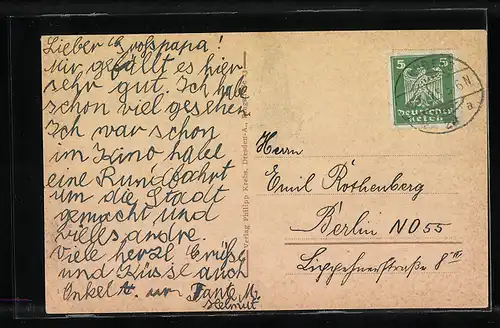 Lieber Großpapa!
Mir gefällt es hier
sehr gut. Ich habe
schon viel gesehen
Ich war schon
im Kino habe
eine Rundfahrt
um die Stadt
gemacht und
vieles andre.
Viele herzl. Grüße
und Küsse auch
Onkel Tante M.
Helmut
Verlag Philipp Krebs, Dresden-A.
5 5
Deutsches
Reich
Herrn
Emil Rothenberg
Berlin NO 55
Lippehnerstraße 8 III